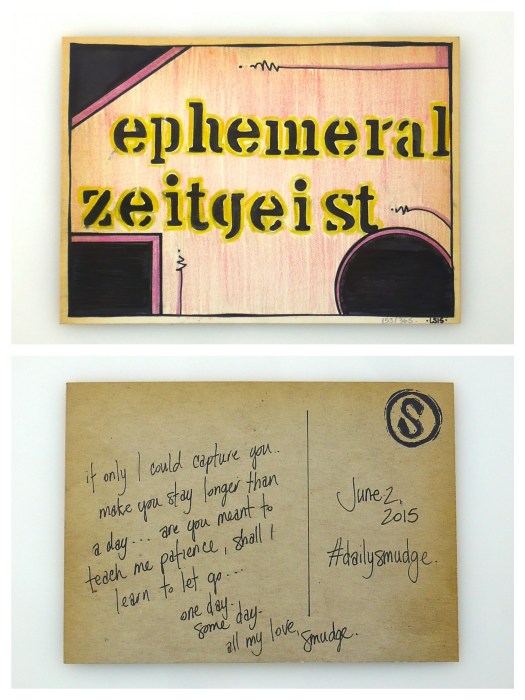 ephemeral
zeitgeist
153/365 ·LSIS·
S
if only I could capture you..
make you stay longer than
a day... are you meant to
teach me patience, shall I
learn to let go...
one day..
some day..
all my love, smudge.
June 2,
2015
#dailysmudge.